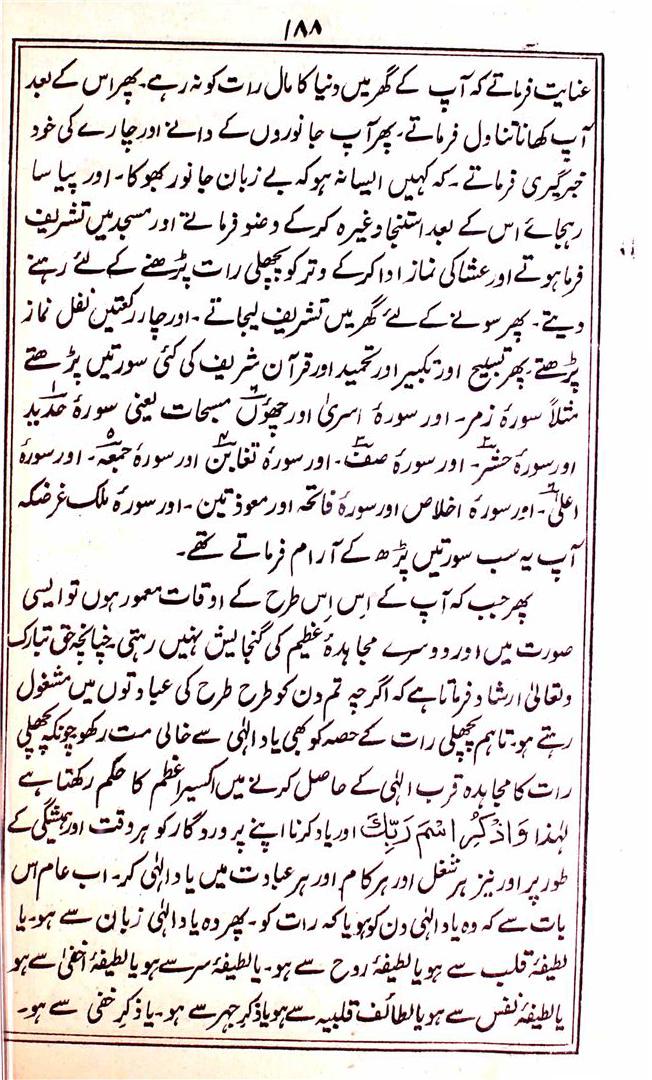 ۱۸۸
عنایت فرماتے کہ آپ کے گھر میں دنیا کا مال رات کو نہ رہے۔ پھر اس کے بعد
آپ کھانا تناول فرماتے۔ پھر آپ جانوروں کے دانے اور چارے کی خود
خبرگیری فرماتے۔ کہ کہیں ایسا نہ ہو کہ بے زبان جانور بھوکا۔ اور پیاسا
رہجائے اس کے بعد استنجا وغیرہ کرکے وضو فرماتے اور مسجد میں تشریف
فرما ہوتے اور عشا کی نماز ادا کرکے وتر کو پچھلی رات پڑھنے کے لئے رہنے
دیتے۔ پھر سونے کے لئے گھر میں تشریف لیجاتے۔ اور چار رکعتیں نفل نماز
پڑھتے۔ پھر تسبیح اور تکبیر اور تحمید اور قرآن شریف کی کئی سورتیں پڑھتے
مثلاً سورۂ زمر۔ اور سورۂ اسریٰ اور چھوں مسبحات یعنی سورۂ حدید۱
اور سورۂ حشر۲۔ اور سورۂ صف۳۔ اور سورۂ تغابن۴ اور سورۂ جمعہ۵۔ اور سورۂ
اعلیٰ۶۔ اور سورۂ اخلاص اور سورۂ فاتحہ اور معوذتین۔ اور سورۂ ملک غرضکہ
آپ یہ سب سورتیں پڑھ کے آرام فرماتے تھے۔
پھر جب کہ آپ کے اِس اِس طرح کے اوقات معمور ہوں تو ایسی
صورت میں اور دوسرے مجاہدۂ عظیم کی گنجایش نہیں رہتی چنانچہ حق تبارک
وتعالیٰ ارشاد فرماتا ہے کہ اگرچہ تم دن کو طرح طرح کی عبادتوں میں مشغول
رہتے ہو۔ تاہم پچھلی رات کے حصہ کو بھی یاد الٰہی سے خالی مت رکھو چونکہ پچھلی
رات کا مجاہدہ قرب الٰہی کے حاصل کرنے میں اکسیر اعظم کا حکم رکھتا ہے
لہٰذا وَاذْكِرُ اسْمَ رَبِّكَ اور یاد کرنا اپنے پروردگار کو ہر وقت اور ہمیشگی کے
طور پر اور نیز ہر شغل اور ہر کام اور ہر عبادت میں یاد الٰہی کر۔ اب عام اس
بات سے کہ وہ یاد الٰہی دن کو ہو یا کہ رات کو۔ پھر وہ یاد الٰہی زبان سے ہو۔ یا
لطیفۂ قلب سے ہو یا لطیفۂ روح سے ہو۔ یا لطیفۂ سر سے ہو یا لطیفۂ اخفیٰ سے ہو
یا لطیفۂ نفس سے ہو یا لطائف قلبیہ سے ہو یا ذکر جہر سے ہو۔ یا ذکر خفی سے ہو۔